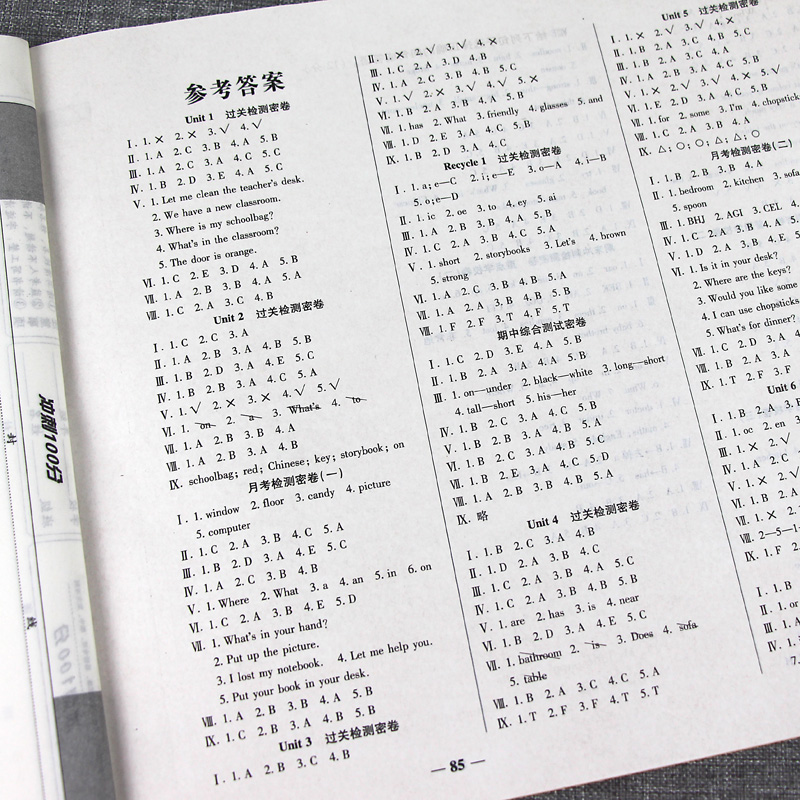 参考答案
Unit 1 过关检测密卷
Ⅰ. 1. × 2. × 3. √ 4. √
Ⅱ. 1. A 2. C 3. B 4. A 5. B
Ⅲ. 1. A 2. C 3. A 4. C 5. C
Ⅳ. 1. B 2. D 3. E 4. A 5. C
Ⅴ. 1. Let me clean the teacher's desk.
2. We have a new classroom.
3. Where is my schoolbag?
4. What's in the classroom?
5. The door is orange.
Ⅵ. 1. C 2. E 3. D 4. A 5. B
Ⅶ. 1. A 2. B 3. B 4. A 5. A
Ⅷ. 1. C 2. A 3. C 4. B
Unit 2 过关检测密卷
Ⅰ. 1. C 2. C 3. A
Ⅱ. 1. A 2. B 3. A 4. B 5. B
Ⅲ. 1. B 2. D 3. A 4. E 5. C
Ⅳ. 1. B 2. A 3. B 4. A 5. B
Ⅴ. 1. √ 2. × 3. × 4. √ 5. √
Ⅵ. 1. on 2. a 3. What's 4. to
Ⅶ. 1. A 2. B 3. B 4. A
Ⅷ. 1. B 2. B 3. A 4. B
Ⅸ. schoolbag; red; Chinese; key; storybook; on
月考检测密卷(一)
Ⅰ. 1. window 2. floor 3. candy 4. picture
5. computer
Ⅱ. 1. C 2. A 3. B 4. C 5. A
Ⅲ. 1. B 2. D 3. A 4. E 5. C
Ⅳ. 1. C 2. A 3. B 4. B
Ⅴ. 1. Where 2. What 3. a 4. an 5. in 6. on
Ⅵ. 1. C 2. A 3. B 4. E 5. D
Ⅶ. 1. What's in your hand?
2. Put up the picture.
3. I lost my notebook. 4. Let me help you.
5. Put your book in your desk.
Ⅷ. 1. A 2. B 3. B 4. A 5. B
Ⅸ. 1. C 2. A 3. B 4. B 5. B
Unit 3 过关检测密卷
Ⅰ. 1. A 2. B 3. C 4. B
Ⅱ. 1. × 2. √ 3. √ 4. ×
Ⅲ. 1. C 2. A 3. D 4. B
Ⅳ. 1. A 2. C 3. B 4. B 5. C
Ⅴ. 1. √ 2. × 3. √ 4. √ 5. ×
Ⅵ. 1. B 2. A 3. B 4. A 5. B
Ⅶ. 1. has 2. What 3. friendly 4. glasses 5. and
Ⅷ. 1. D 2. E 3. A 4. C 5. B
Ⅸ. 1. B 2. D 3. A 4. C
Recycle 1 过关检测密卷
Ⅰ. 1. a; e—C 2. i; e—E 3. o—A 4. i—B
5. o; e—D
Ⅱ. 1. ic 2. oe 3. to 4. ey 5. ai
Ⅲ. 1. A 2. B 3. B 4. A 5. B
Ⅳ. 1. C 2. A 3. B 4. C 5. A
Ⅴ. 1. short 2. storybooks 3. Let's 4. brown
5. strong
Ⅵ. 1. A 2. C 3. B 4. B 5. A
Ⅶ. 1. A 2. A 3. B 4. B 5. B
Ⅷ. 1. F 2. F 3. T 4. F 5. T
期中综合测试密卷
Ⅰ. 1. C 2. D 3. E 4. A 5. B
Ⅱ. 1. B 2. A 3. A 4. A 5. B
Ⅲ. 1. on—under 2. black—white 3. long—short
4. tall—short 5. his—her
Ⅳ. 1. A 2. A 3. C 4. C 5. B
Ⅴ. 1. B 2. B 3. A 4. B 5. A
Ⅵ. 1. B 2. C 3. B 4. A 5. B
Ⅶ. 1. B 2. E 3. A 4. C 5. D
Ⅷ. 1. A 2. B 3. B 4. A 5. B
Ⅸ. 略
Unit 4 过关检测密卷
Ⅰ. 1. B 2. C 3. A 4. B
Ⅱ. 1. D 2. A 3. B 4. C
Ⅲ. 1. C 2. A 3. B 4. A 5. C
Ⅳ. 1. C 2. A 3. B 4. B 5. B
Ⅴ. 1. are 2. has 3. is 4. near
Ⅵ. 1. B 2. D 3. A 4. E 5. C
Ⅶ. 1. bathroom 2. is 3. Does 4. sofa
5. table
Ⅷ. 1. B 2. A 3. C 4. C 5. A
Ⅸ. 1. T 2. F 3. F 4. T 5. T
Unit 5 过关检测密卷
Ⅰ. 1. × 2. √ 3. √ 4. ×
Ⅱ. 1. B 2. A 3. C 4. B 5. C
Ⅲ. 1. B 2. C 3. A 4. A
Ⅳ. 1. C 2. A 3. B 4. C 5. B
Ⅴ. 1. × 2. √ 3. √ 4. × 5. √
Ⅵ. 1. E 2. D 3. A 4. C 5. B
Ⅶ. 1. for 2. some 3. I'm 4. chopstick
Ⅷ. 1. C 2. A 3. B 4. A
Ⅸ. △; ○; ○; △; ○
月考检测密卷(二)
Ⅰ. 1. B 2. B 3. B 4. A
Ⅱ. 1. bedroom 2. kitchen 3. sofa
5. spoon
Ⅲ. 1. BHJ 2. AGI 3. CEL 4.
Ⅳ. 1. C 2. A 3. B 4. A 5. B
Ⅴ. 1. D 2. A 3. B 4. E
Ⅵ. 1. Is it in your desk?
2. Where are the keys?
3. Would you like some
4. I can use chopsticks
5. What's for dinner?
Ⅶ. 1. C 2. D 3. A 4.
Ⅷ. 1. B 2. A 3. A 4.
Ⅸ. 1. T 2. F 3. F
Unit 6
Ⅰ. 1. B 2. A 3. B
Ⅱ. 1. oc 2. en 3.
Ⅲ. 1. × 2. √
Ⅷ. 2—5—1
Ⅸ. 1. F 2.
— 85 —
冲刺100分
封
线